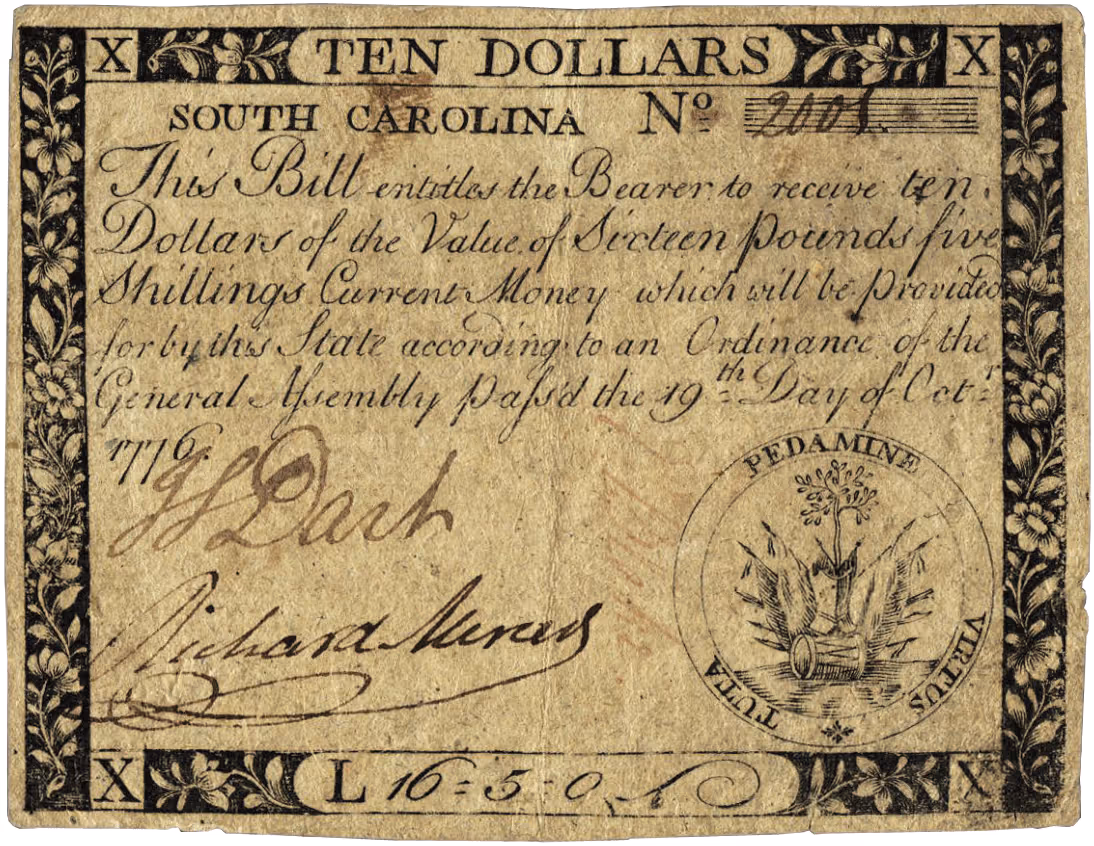 X TEN DOLLARS X
SOUTH CAROLINA Nº 2005.
This Bill entitles the Bearer to receive ten
Dollars of the Value of Sixteen pounds five
Shillings Current Money which will be provided
for by this State according to an Ordinance of the
General Aſsembly paſs'd the 19th Day of Octr
1776.
JS Dart
Richard Mercer
PEDAMINE
TUTA VIRTUS
X L 16=5=0 X